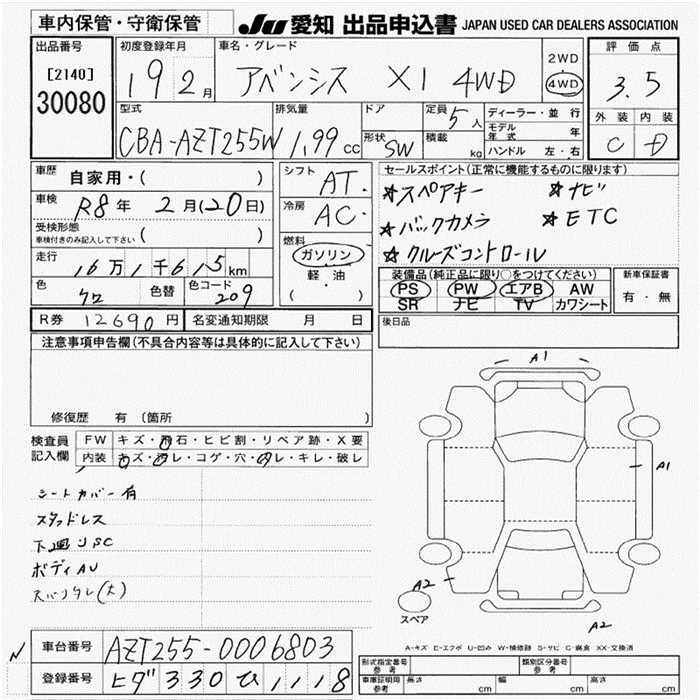 車内保管・守衛保管
JU 愛知 出品申込書 JAPAN USED CAR DEALERS ASSOCIATION
出品番号
[2140]
30080
初度登録年月
19 2月
車名・グレード
アベンシス X1 4WD
2WD
4WD
評価点
3.5
外装 内装
C D
型式
CBA-AZT255W
排気量
1.99 cc
ドア
形状 SW
定員 5人
積載 kg
ディーラー・並行
モデル年式 年
ハンドル 左・右
車歴 自家用・( )
車検 R8年 2月(20日)
受検形態
車検付きのみ記入して下さい ( )
走行 16万1千615km
色 クロ 色替 色コード 209
シフト AT.
冷房 AC.
燃料
ガソリン
軽・油
( )
セールスポイント(正常に機能するものに限ります)
★スペアキー ★ナビ
★バックカメラ ★ETC
★クルーズコントロール
装備品(純正品に限り○をつけてください)
PS PW エアB AW
SR ナビ TV カワシート
新車保証書
有・無
R券 12690円 名変通知期限 月 日
後日品
注意事項申告欄(不具合内容等は具体的に記入して下さい)
修復歴 有 (箇所
検査員
記入欄
FW キズ・飛石・ヒビ割・リペア跡・X要
内装 キズ・汚レ・コゲ・穴・スレ・キレ・破レ
シートカバー有
スタッドレス
下廻りSC
ボディAU
A1
A1
A2
A2
スペア
A-キズ E-エクボ U-凹み W-補修跡 S-サビ C-腐食 XX-交換済
N
車台番号 AZT255-0006803
登録番号 ヒダ 330 ひ 1118
形式指定番号
参考
類別区分番号
参考
車庫証明用
参考
長さ cm 幅 cm 高さ cm